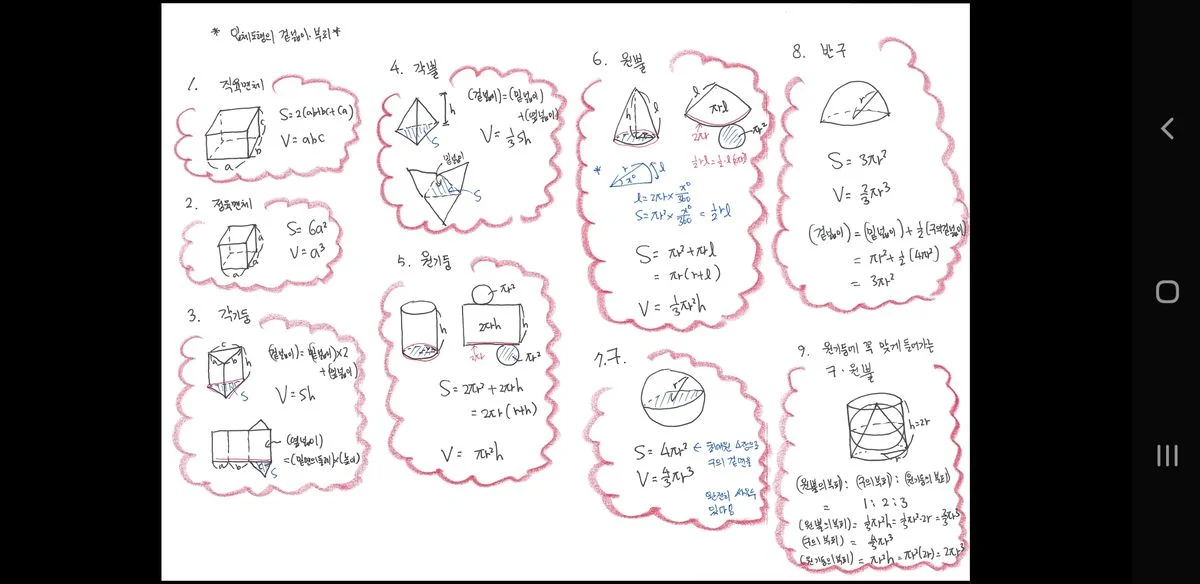 * 입체도형의 겉넓이·부피 *
1. 직육면체
S=2(ab+bc+ca)
V=abc
a
b
c
2. 정육면체
S=6a²
V=a³
a
a
a
3. 각기둥
(겉넓이)=(밑넓이)×2
+(옆넓이)
V=Sh
a b c h
S
(옆넓이)
=(밑면의 둘레)×(높이)
a b c
S
4. 각뿔
(겉넓이)=(밑넓이)
+(옆넓이)
V=⅓Sh
h
S
옆넓이
S
5. 원기둥
h
r
πr²
2πrh
h
2πr
πr²
S=2πr²+2πrh
=2πr(r+h)
V=πr²h
6. 원뿔
l
h
r
l
πrl
2πr
πr²
½rl=½·l(2πr)
*
r
l
x°
l=2πr×x°/360
S=πr²×x°/360=½rl
S=πr²+πrl
=πr(r+l)
V=⅓πr²h
7. 구
r
S=4πr²
V=4/3πr³
구의 겉면을
완전히 싸울수
있다음
8. 반구
r
S=3πr²
V=⅔πr³
(겉넓이)=(밑넓이)+½(구의겉넓이)
=πr²+½(4πr²)
=3πr²
9. 원기둥에 꼭 맞게 들어가는
구·원뿔
h=2r
r
(원뿔의부피):(구의부피):(원기둥의부피)
=1:2:3
(원뿔의부피)=⅓πr²h=⅓πr²·2r=⅔πr³
(구의 부피)=4/3πr³
(원기둥의부피)=πr²h=πr²(2r)=2πr³